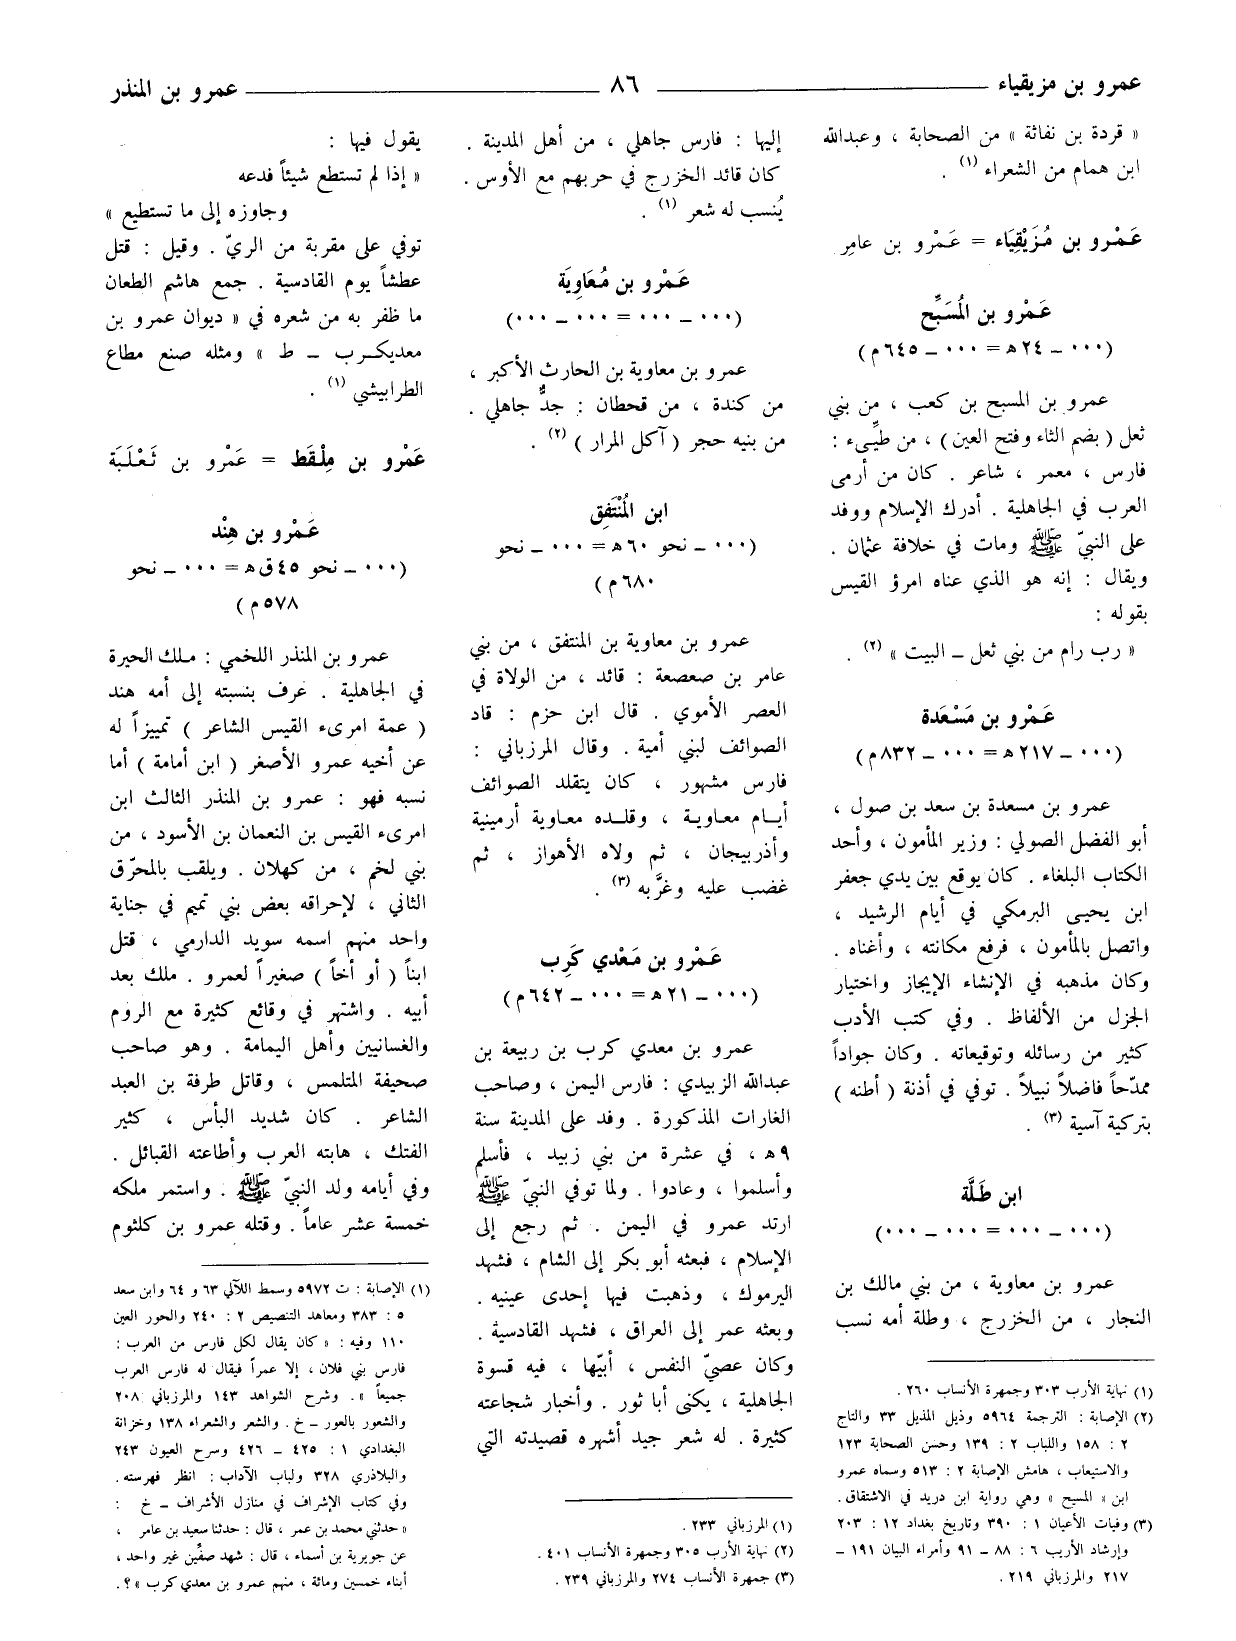 عمرو بن مزيقياء ــــــ ٨٦ ــــــ عمرو بن المنذر
« قردة بن نفاثة » من الصحابة ، وعبدالله
ابن همام من الشعراء (١) .
عَمْرو بن مُزَيْقِيَاء = عَمْرو بن عامِر
عَمْرو بن المُسَبِّح
(٠٠٠ ــ ٢٤ ه‍ = ٠٠٠ ــ ٦٤٥ م)
عمرو بن المسبح بن كعب ، من بني
ثعل ( بضم الثاء وفتح العين ) ، من طيِّىء :
فارس ، معمر ، شاعر . كان من أرمى
العرب في الجاهلية . أدرك الإسلام ووفد
على النبيّ ﷺ ومات في خلافة عثمان .
ويقال : إنه هو الذي عناه امرؤ القيس
بقوله :
« رب رام من بني ثعل ــ البيت » (٢) .
عَمْرو بن مَسْعَدة
(٠٠٠ ــ ٢١٧ ه‍ = ٠٠٠ ــ ٨٣٢ م)
عمرو بن مسعدة بن سعد بن صول ،
أبو الفضل الصولي : وزير المأمون ، وأحد
الكتاب البلغاء . كان يوقع بين يدي جعفر
ابن يحيى البرمكي في أيام الرشيد ،
واتصل بالمأمون ، فرفع مكانته ، وأغناه .
وكان مذهبه في الإنشاء الإيجاز واختيار
الجزل من الألفاظ . وفي كتب الأدب
كثير من رسائله وتوقيعاته . وكان جواداً
ممدّحاً فاضلاً نبيلاً . توفي في أذنة ( أطنه )
بتركية آسية (٣) .
ابن طَلَّة
(٠٠٠ ــ ٠٠٠ = ٠٠٠ ــ ٠٠٠)
عمرو بن معاوية ، من بني مالك بن
النجار ، من الخزرج ، وطلة أمه نسب
(١) نهاية الأرب ٣٠٣ وجمهرة الأنساب ٢٦٠ .
(٢) الإصابة : الترجمة ٥٩٦٤ وذيل المذيل ٣٣ والتاج
٢ : ١٥٨ واللباب ٢ : ١٣٩ وحسن الصحابة ١٢٣
والاستيعاب ، هامش الإصابة ٢ : ٥١٣ وسماه عمرو
ابن « المسيح » وهي رواية ابن دريد في الاشتقاق.
(٣) وفيات الأعيان ١ : ٣٩٠ وتاريخ بغداد ١٢ : ٢٠٣
وإرشاد الأريب ٦ : ٨٨ ــ ٩١ وأمراء البيان ١٩١ ــ
٢١٧ والمرزباني ٢١٩ .
إليها : فارس جاهلي ، من أهل المدينة .
كان قائد الخزرج في حربهم مع الأوس .
يُنسب له شعر (١) .
عَمْرو بن مُعَاوِيَة
(٠٠٠ ــ ٠٠٠ = ٠٠٠ ــ ٠٠٠)
عمرو بن معاوية بن الحارث الأكبر ،
من كندة ، من قحطان : جدٌّ جاهلي .
من بنيه حجر ( آكل المرار ) (٢) .
ابن المُنْتَفِق
(٠٠٠ ــ نحو ٦٠ ه‍ = ٠٠٠ ــ نحو
٦٨٠ م)
عمرو بن معاوية بن المنتفق ، من بني
عامر بن صعصعة : قائد ، من الولاة في
العصر الأموي . قال ابن حزم : قاد
الصوائف لبني أمية . وقال المرزباني :
فارس مشهور ، كان يتقلد الصوائف
أيام معاوية ، وقلده معاوية أرمينية
وأذربيجان ، ثم ولاه الأهواز ، ثم
غضب عليه وغرَّبه (٣) .
عَمْرو بن مَعْدي كَرِب
(٠٠٠ ــ ٢١ ه‍ = ٠٠٠ ــ ٦٤٢ م)
عمرو بن معدي كرب بن ربيعة بن
عبدالله الزبيدي : فارس اليمن ، وصاحب
الغارات المذكورة . وفد على المدينة سنة
٩ ه‍ ، في عشرة من بني زبيد ، فأسلم
وأسلموا ، وعادوا . ولما توفي النبيّ ﷺ
ارتد عمرو في اليمن . ثم رجع إلى
الإسلام ، فبعثه أبو بكر إلى الشام ، فشهد
اليرموك ، وذهبت فيها إحدى عينيه .
وبعثه عمر إلى العراق ، فشهد القادسية .
وكان عصيّ النفس ، أبيّها ، فيه قسوة
الجاهلية ، يكنى أبا ثور . وأخبار شجاعته
كثيرة . له شعر جيد أشهره قصيدته التي
(١) المرزباني ٢٣٣ .
(٢) نهاية الأرب ٣٠٥ وجمهرة الأنساب ٤٠١ .
(٣) جمهرة الأنساب ٢٧٤ والمرزباني ٢٣٩ .
يقول فيها :
« إذا لم تستطع شيئاً فدعه
وجاوزه إلى ما تستطيع »
توفي على مقربة من الريّ . وقيل : قتل
عطشاً يوم القادسية . جمع هاشم الطعان
ما ظفر به من شعره في « ديوان عمرو بن
معديكرب ــ ط » ومثله صنع مطاع
الطرابيشي (١) .
عَمْرو بن مِلْقَط = عَمْرو بن ثَعْلَبَة
عَمْرو بن هِنْد
(٠٠٠ ــ نحو ٤٥ ق ه‍ = ٠٠٠ ــ نحو
٥٧٨ م)
عمرو بن المنذر اللخمي : ملك الحيرة
في الجاهلية . عرف بنسبته إلى أمه هند
( عمة امرىء القيس الشاعر ) تمييزاً له
عن أخيه عمرو الأصغر ( ابن أمامة ) أما
نسبه فهو : عمرو بن المنذر الثالث ابن
امرىء القيس بن النعمان بن الأسود ، من
بني لخم ، من كهلان . ويلقب بالمحرّق
الثاني ، لإحراقه بعض بني تميم في جناية
واحد منهم اسمه سويد الدارمي ، قتل
ابناً ( أو أخاً ) صغيراً لعمرو . ملك بعد
أبيه . واشتهر في وقائع كثيرة مع الروم
والغسانيين وأهل اليمامة . وهو صاحب
صحيفة المتلمس ، وقاتل طرفة بن العبد
الشاعر . كان شديد البأس ، كثير
الفتك ، هابته العرب وأطاعته القبائل .
وفي أيامه ولد النبيّ ﷺ . واستمر ملكه
خمسة عشر عاماً . وقتله عمرو بن كلثوم
(١) الإصابة : ت ٥٩٧٢ وسمط اللآلي ٦٣ و ٦٤ وابن سعد
٥ : ٣٨٣ ومعاهد التنصيص ٢ : ٢٤٠ والحور العين
١١٠ وفيه : « كان يقال لكل فارس من العرب :
فارس بني فلان ، إلا عمراً فيقال له فارس العرب
جميعاً ». وشرح الشواهد ١٤٣ والمرزباني ٢٠٨
والشعور بالعور ــ خ . والشعر والشعراء ١٣٨ وخزانة
البغدادي ١ : ٤٢٥ ــ ٤٢٦ وسرح العيون ٢٤٣
والبلاذري ٣٢٨ ولباب الآداب : انظر فهرسته .
وفي كتاب الإشراف في منازل الأشراف ــ خ :
« حدثني محمد بن عمر ، قال : حدثنا سعيد بن عامر ،
عن جويرية بن أسماء ، قال : شهد صفِّين غير واحد ،
أبناء خمسين ومائة ، منهم عمرو بن معدي كرب »؟.